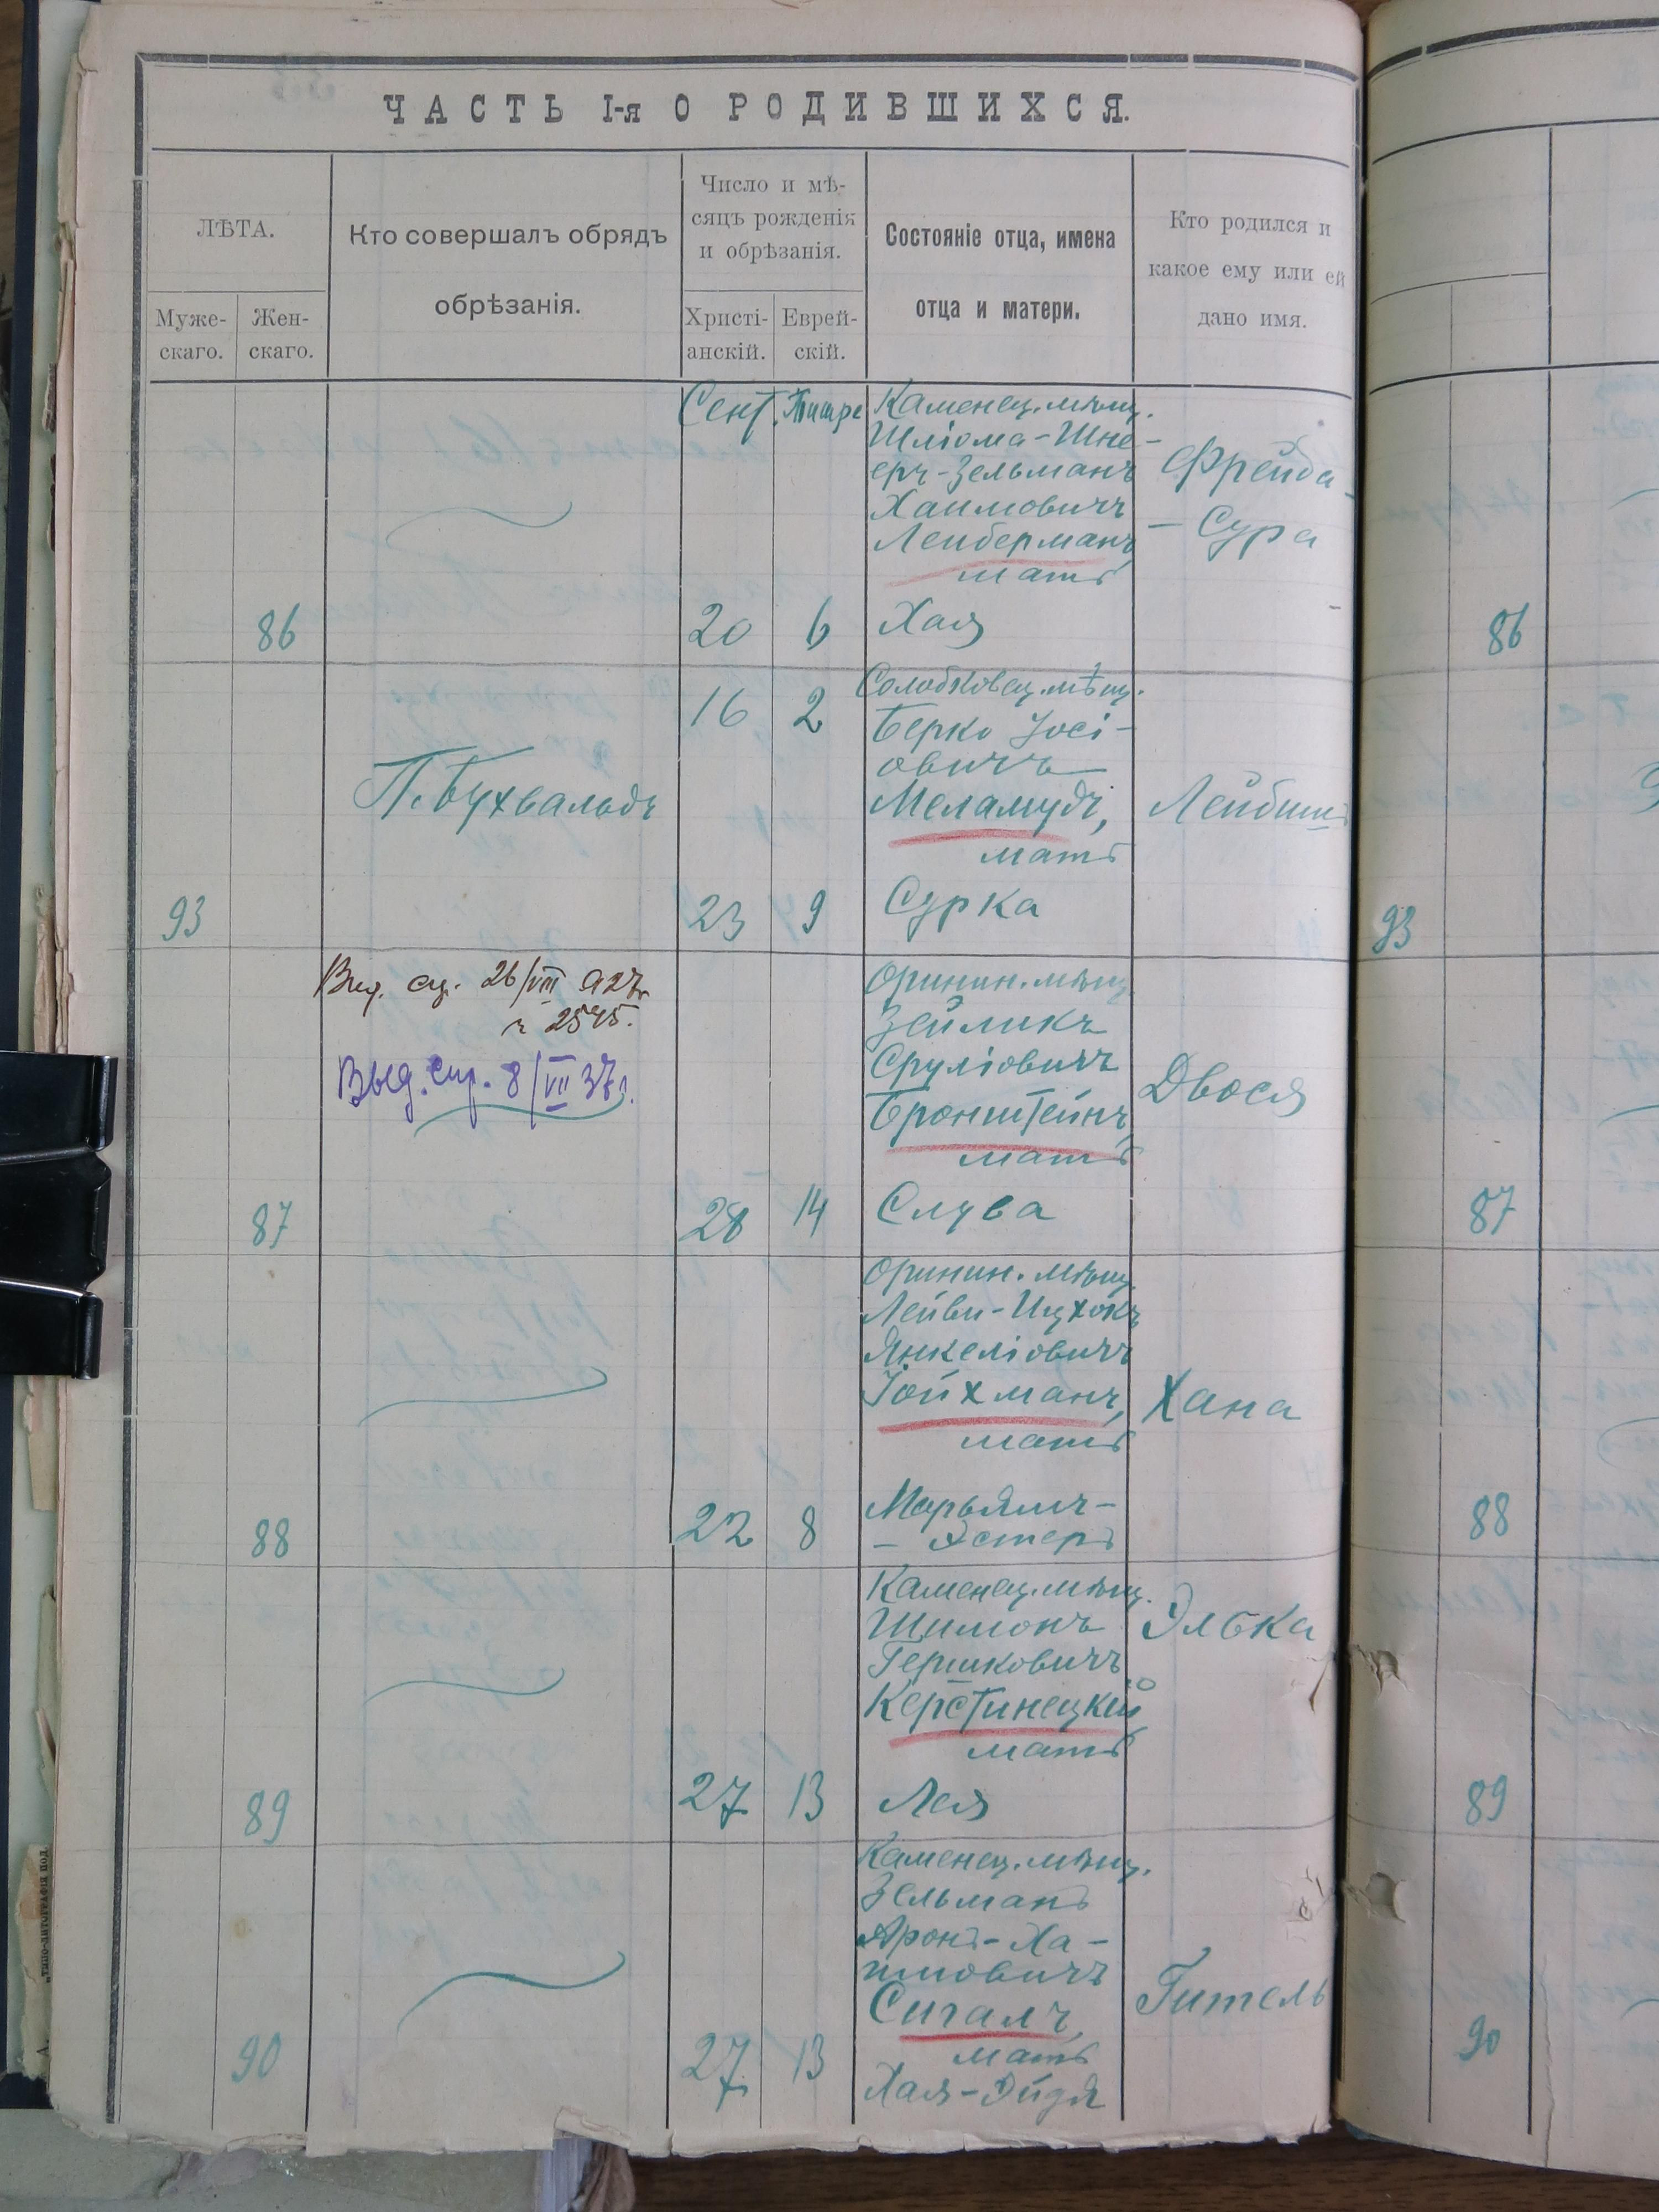 ЧАСТЬ I-я О РОДИВШИХСЯ.
ЛѢТА.
Муже-
скаго.
Жен-
скаго.
Кто совершалъ обрядъ
обрѣзанія.
Число и мѣ-
сяцъ рожденія
и обрѣзанія.
Христі-
анскій.
Еврей-
скій.
Состояніе отца, имена
отца и матери.
Кто родился и
какое ему или ей
дано имя.
Сент. Тишре
Каменец. мѣщ.
Шліома-Шне-
еръ-Зельманъ
Хаимовичъ
Лейберманъ,
мать
Хая
Фрейда-
- Сура
86
20
6
86
Солобковец. мѣщ.
Берко Іосі-
овичъ
Меламудъ,
мать
Сурка
16
2
П. Бухвальдъ
Лейбишъ
93
23
9
93
Выд. сп. 26/VIII 927г.
Выд. спр. 8/VII 37г.
Оринин. мѣщ.
Зейликъ
Сруліовичъ
Бронштейнъ,
мать
Слува
Двося
87
28
14
87
Оринин. мѣщ.
Лейви-Ицхокъ
Янкеліовичъ
Іойхманъ,
мать
Марьямъ-
- Эстеръ
Хана
88
22
8
88
Каменец. мѣщ.
Шимонъ
Гершковичъ
Керстинецкій
мать
Лея
Элька
89
27
13
89
Каменец. мѣщ.
Зельманъ
Аронъ-Ха-
имовичъ
Сигалъ,
мать
Хая-Эйдя
Гитель
90
27
13
90